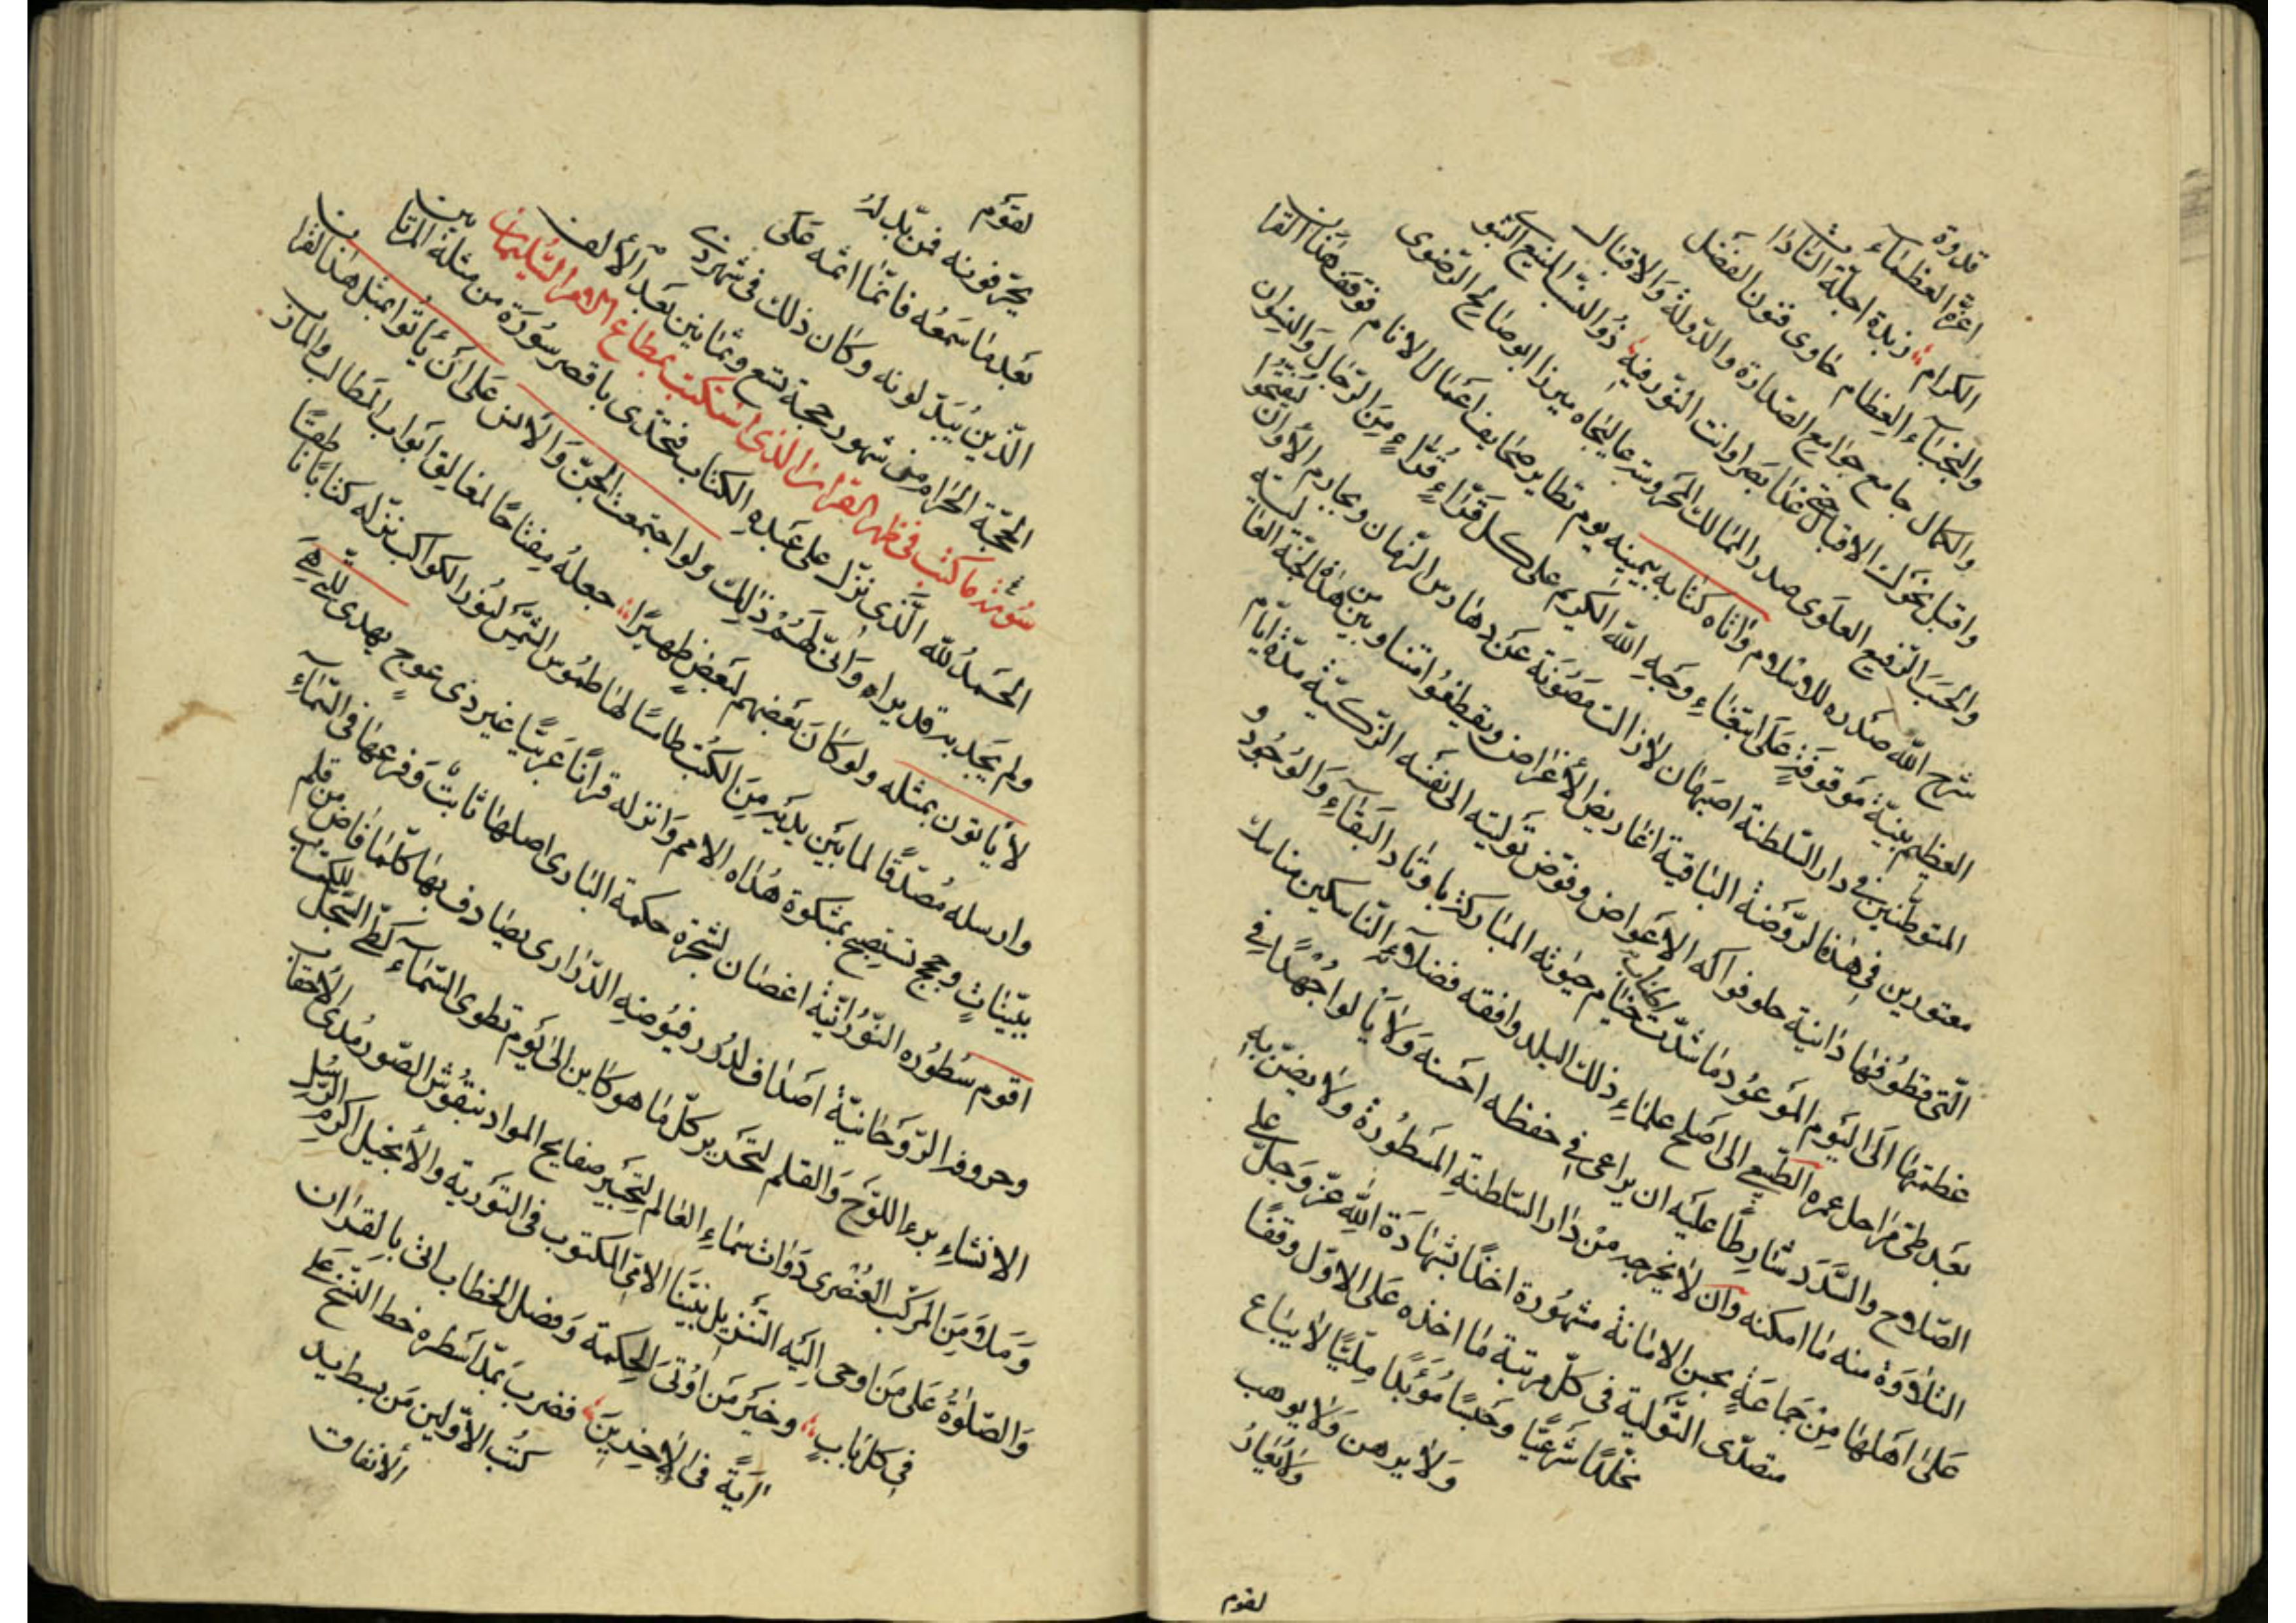 قدوة
اعزّة العظماء
الكرام زبدة اجلّة السادات
والنجباء العظام حاوى فنون الفضل
والكمال جامع جوامع الصدارة والدولة والاقبال
واقبل نحوك الاقبال حتى غدا بصرا وانت النور فيه ذو النسب المنيع النبوى
والحسب الرفيع العلوى صدر الممالك المحروسة عاليجاه ميرزا ابو صالح الرضوى
شرح الله صدره للاسلام واتاه كتابه بيمينه يوم تطاير صحايف اعمال الانام فوقف هذا القران
العظيم بنيّة موقوفة على ابتغاء وجه الله الكريم على كل قرّاء قُرّاء من الرجال والنسوان
المتوطّنين في دار السلطنة اصبهان لازالت مصونة عن دهارس الزمان ومجارم الأوان
معتورين في هذه الروضة الباقية اغاريض الأغراض ويقطفوا متناوبين من هذه الجنّة العالية
الّتى قطوفها دانية حلو فواكه الاعواض وفوّض توليته الى نفسه الزكيّة مدّة ايّام
عظمتها الى اليوم الموعود ما شدّت خيام حيوته المباركة باوتاد البقاء والوجود و
بعد طىّ مراحل عمره الطبيعى الى اصلح علماء ذلك البلد وافقه فضلاء الناسكين مناسك
الصلاح والسّدد شارطًا عليه ان يراعى في حفظه احسنه ولا يألوا جهدًا في
التلاوة منه ما امكنه وان لا يخرجه من دار السلطنة المسطورة ولا يضنّ به
على اهلها من جماعة بحسن الامانة مشهورة اخذًا بشهادة الله عزّ وجلّ على
متصدّى التولية في كلّ مرتبة ما اخذه على الاوّل وقفًا
مخلّدًا شرعيًّا وحبسًا مؤبّدًا ملّيًّا لا يباع
ولا يرهن ولا يوهب
ولا يعار
لقوم
لقوم
يحرّفونه فمن بدّله
بعد ما سمعه فانّما اثمه على
الّذين يبدّلونه وكان ذلك في شهر ذى
الحجّة الحرام من شهور حجة تسع وثمانين بعد الألف
ما كتبت في ظهر القران الذى استكتب بمطاع الامر السليمانى
الحمد لله الّذى نزّل على عبده الكتاب فتحدّى باقصر سورة من مثله المرتابين
ولم يجد به قديراه وانّى لهم ذلك ولو اجتمعت الجنّ والانس على ان يأتوا بمثل هذا القران
لا يأتون بمثله ولو كان بعضهم لبعض ظهيرًا جعله مفتاحًا لمغالق ابواب المطالب والمآرب
وارسله مصدّقًا لما بين يديه من الكتب طامسًا لها طموس الشمس لنور الكواكب نزّله كتابًا ناطقًا
ببيّنات وحجج تستصبح بمشكوة هداه الامم وانزله قرانًا عربيًّا غير ذى عوج يهدى للّتى هى
اقوم سطوره النّورانيّة اغصان لشجرة حكمة البارى اصلها ثابت وفرعها في السّماء
وحروفه الرّوحانيّة اصداف لدرر فيوضه الدّرارى يصادف بها كلّما فاض من قلم
الانشاء برء اللوح والقلم لتحرير كلّ ما هو كاين الى يوم تطوى السّماء كطىّ السّجل للكتب
ومدّ من المركّب العنصرى دوات سماء العالم لتحبير صفايح المواد بنقوش الصّور مدى الاحقاب
والصّلوة على من اوحى اليه التّنزيل نبيّنا الامّى المكتوب في التّورية والأنجيل اكرم الرّسل
في كلّ باب وخير من اوتى الحكمة وفصل الخطاب اتى بالقران
آية في الاخرين فضرب بمدّ اسطره خط النّسخ على
كتب الاوّلين من بسط يد
الأنفاق